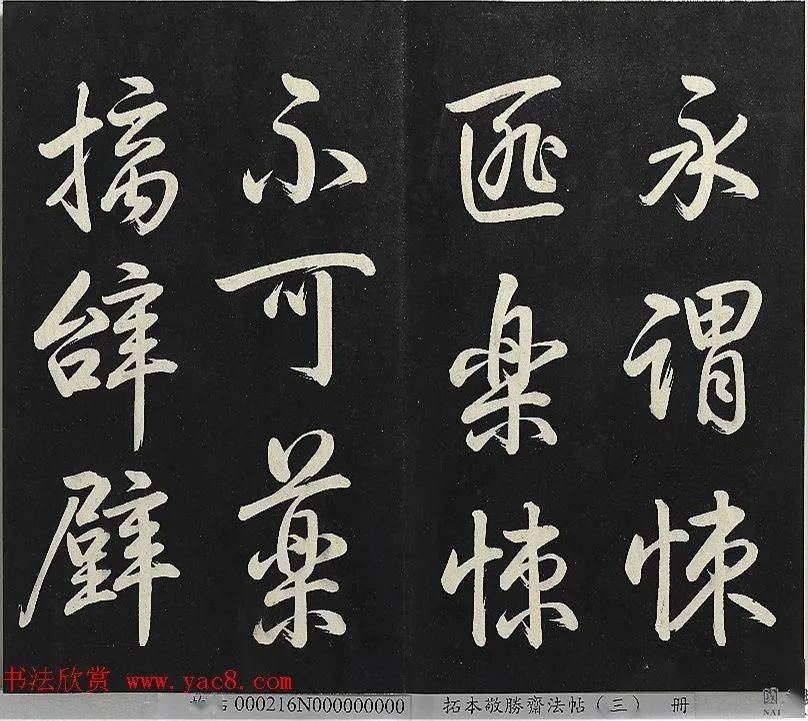 永謂悚
匪樂悚
不可藥
摛辝
书法欣赏 www.yac8.com
000216N000000000
拓本敬勝齋法帖（三） 册
NAI